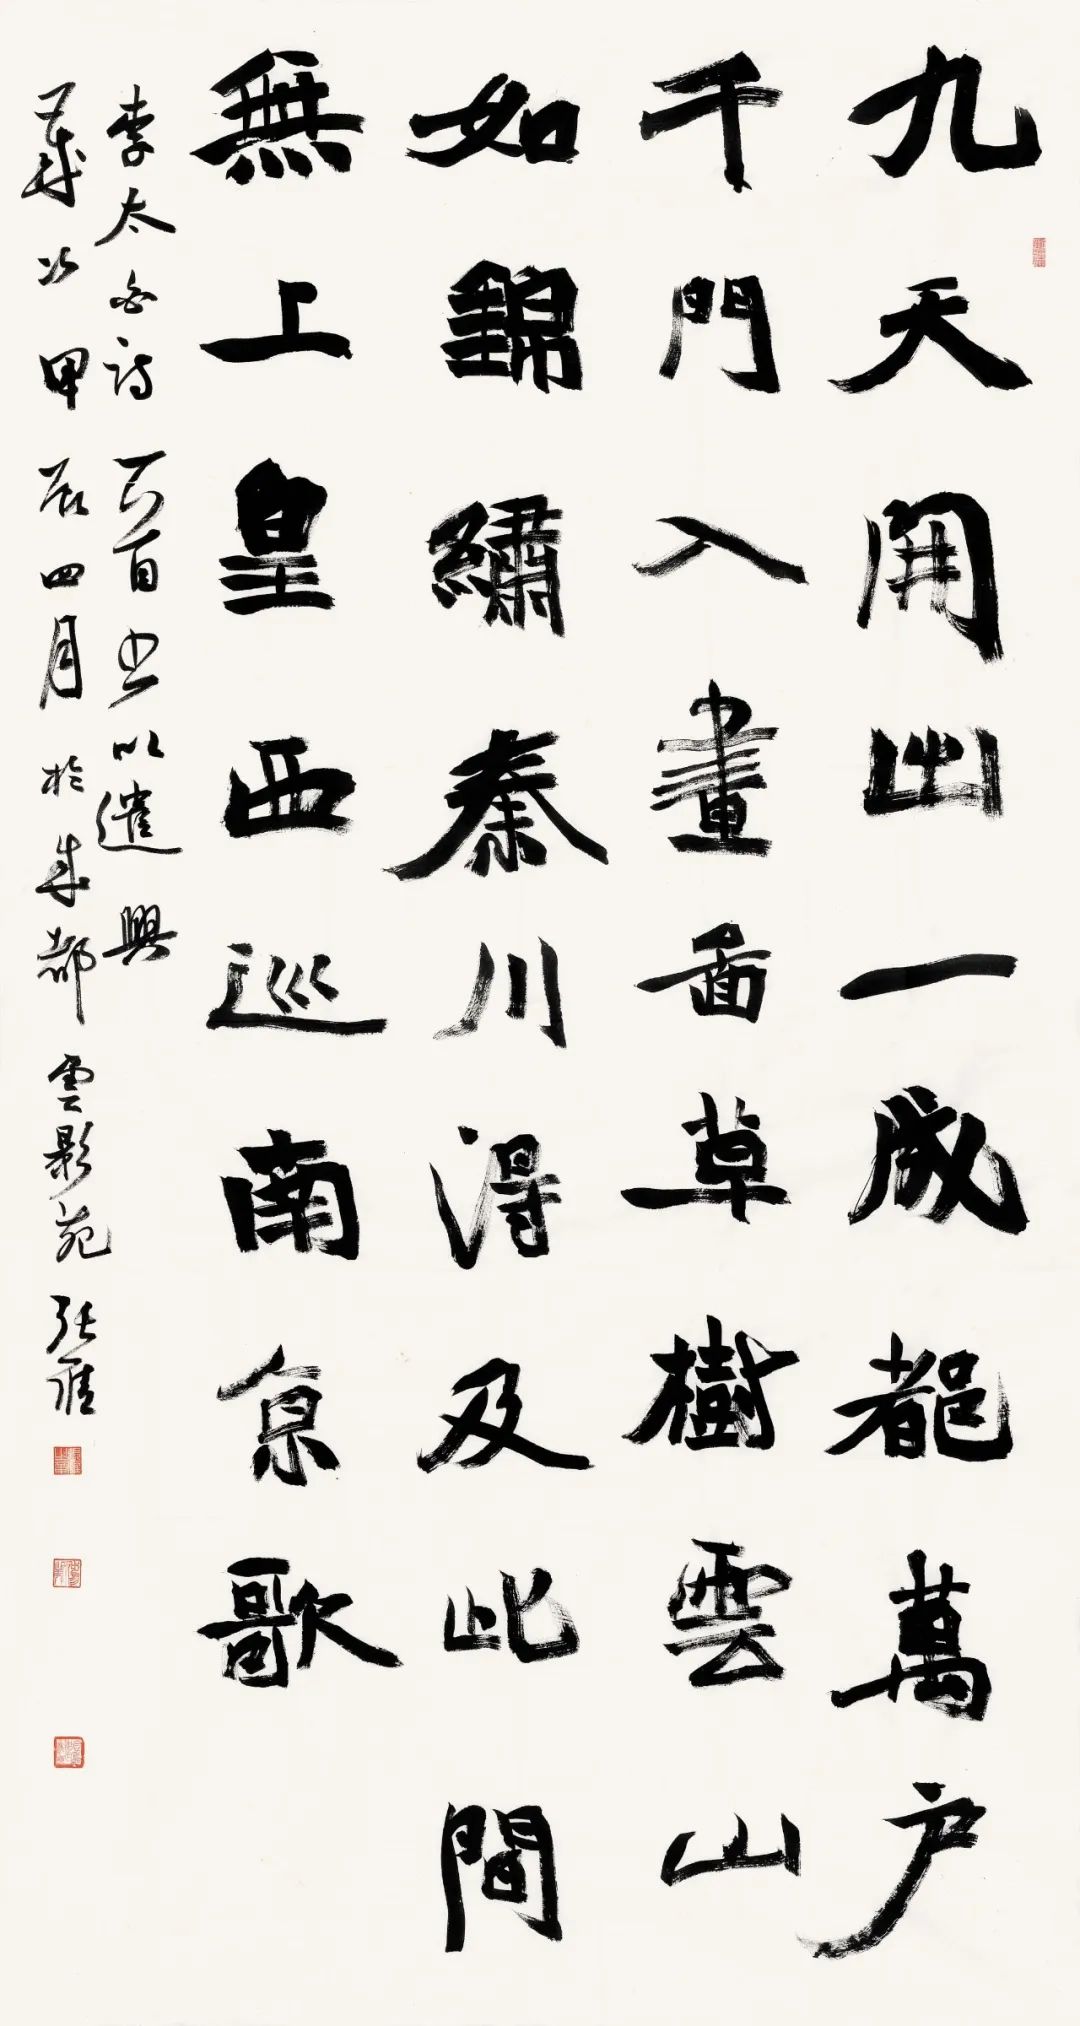 九天開出一成都萬户
千門入畫啚草樹雲山
如錦繡秦川得及此間
無上皇西巡南京歌
李太白詩一首書以遣興
歲次甲辰四月於成都雲影苑張